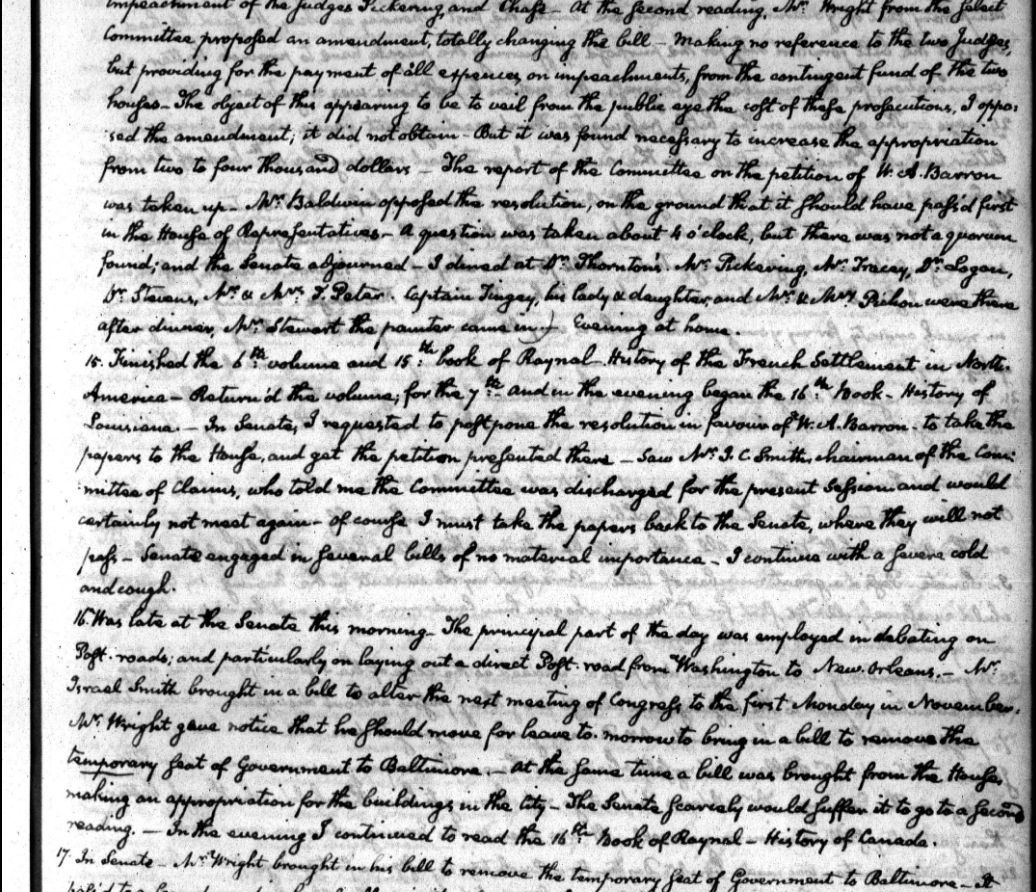 impeachment of the Judges Pickering, and Chase - At the second reading, Mr. Wright from the select
Committee proposed an amendment, totally changing the bill - Making no reference to the two Judges,
but providing for the payment of all expences, on impeachments, from the contingent fund of the two
houses - The object of this appearing to be to veil from the public eye the cost of these prosecutions, I oppo:
sed the amendment; it did not obtain - But it was found necessary to increase the appropriation
from two to four thousand dollars - The report of the Committee on the petition of W. A. Barron
was taken up - Mr. Baldwin opposed the resolution, on the ground that it should have pass'd first
in the House of Representatives - A question was taken about 4 o'clock, but there was not a quorum
found; and the Senate adjourned - I dined at Dr. Thornton's. Mr. Pickering, Mr. Tracey, Dr. Logan,
Dr. Stevens, Mr. & Mrs. T. Peter. Captain Tingey, his lady & daughter, and Mr. & Mrs. Pichon were there
after dinner, Mr. Stewart the painter came in. Evening at home.
15. Finished the 6th. volume and 15th. book of Raynal - History of the French Settlement in North
America - Return'd the volume, for the 7th. and in the evening began the 16th. Book - History of
Louisiana. - In Senate, I requested to postpone the resolution in favour of W. A. Barron - to take the
papers to the House, and get the petition presented there - Saw Mr. J. C. Smith, chairman of the Com:
mittee of Claims, who told me the Committee was discharged for the present Session and would
certainly not meet again - of course I must take the papers back to the Senate, where they will not
pass - Senate engaged in several bills of no material importance - I continue with a severe cold
and cough.
16. Was late at the Senate this morning - The principal part of the day was employed in debating on
Post-roads; and particularly on laying out a direct Post-road from Washington to New-Orleans. - Mr.
Israel Smith brought in a bill to alter the next meeting of Congress, to the first Monday in November.
Mr. Wright gave notice that he should move for leave to-morrow to bring in a bill to remove the
temporary seat of Government to Baltimore. - At the same time a bill was brought from the House,
making an appropriation for the buildings in the city - The Senate scarcely would suffer it to go to a second
reading. - In the evening I continued to read the 16th Book of Raynal - History of Canada.
17. In Senate - Mr. Wright brought in his bill to remove the temporary seat of Government to Baltimore - It
pass'd to a